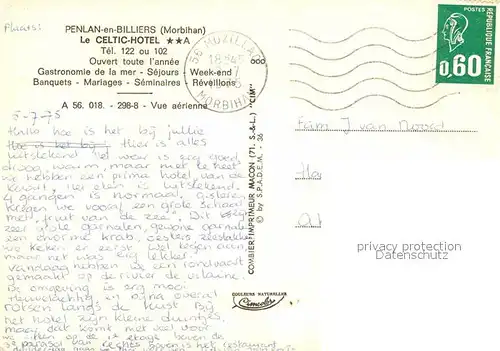 Plaats:
PENLAN-en-BILLIERS (Morbihan)
Le CELTIC-HOTEL ★★A
Tél. 122 ou 102
Ouvert toute l'année
Gastronomie de la mer - Séjours - Week-end
Banquets - Mariages - Séminaires - Réveillons
A 56. 018. - 298-8 - Vue aérienne
56 MUZILLAC
18H45
MORBIHAN
POSTES
REPUBLIQUE FRANÇAISE
0,60
5-7-75
Hallo hoe is het bij jullie
Hoe is het bij Hier is alles
uitstekend het weer is erg goed
droog warm, maar niet te heet
we hebben een prima hotel, van de
kaart, Het eten is uitstekend.
4 gangen is normaal, gisteren
kregen we vooraf een grote schaal
met "fruit van de zee". Dit
zeer grote garnalen, gewone garnalen
een enorme krab, oesters, zeeslakken
we keken er eerst wel tegen aan
maar het was erg lekker.
vandaag hebben we een rondvaart
gemaakt op de rivier de vilaine.
De omgeving is erg mooi
heuvelachtig en bijna overal
rotsen langs de kust Bij
het hotel zijn kleine duintjes
maar dat komt niet veel voor
we zitten op de 1e etage boven de
parasol van rechts Boven is het restaurant
Fam J van
COMBIER IMPRIMEUR MACON (71. S.-&-L.) "CIM"
© by S.P.A.D.E.M. - 36
COULEURS NATURELLES
Cimcolor
privacy protection
Datenschutz